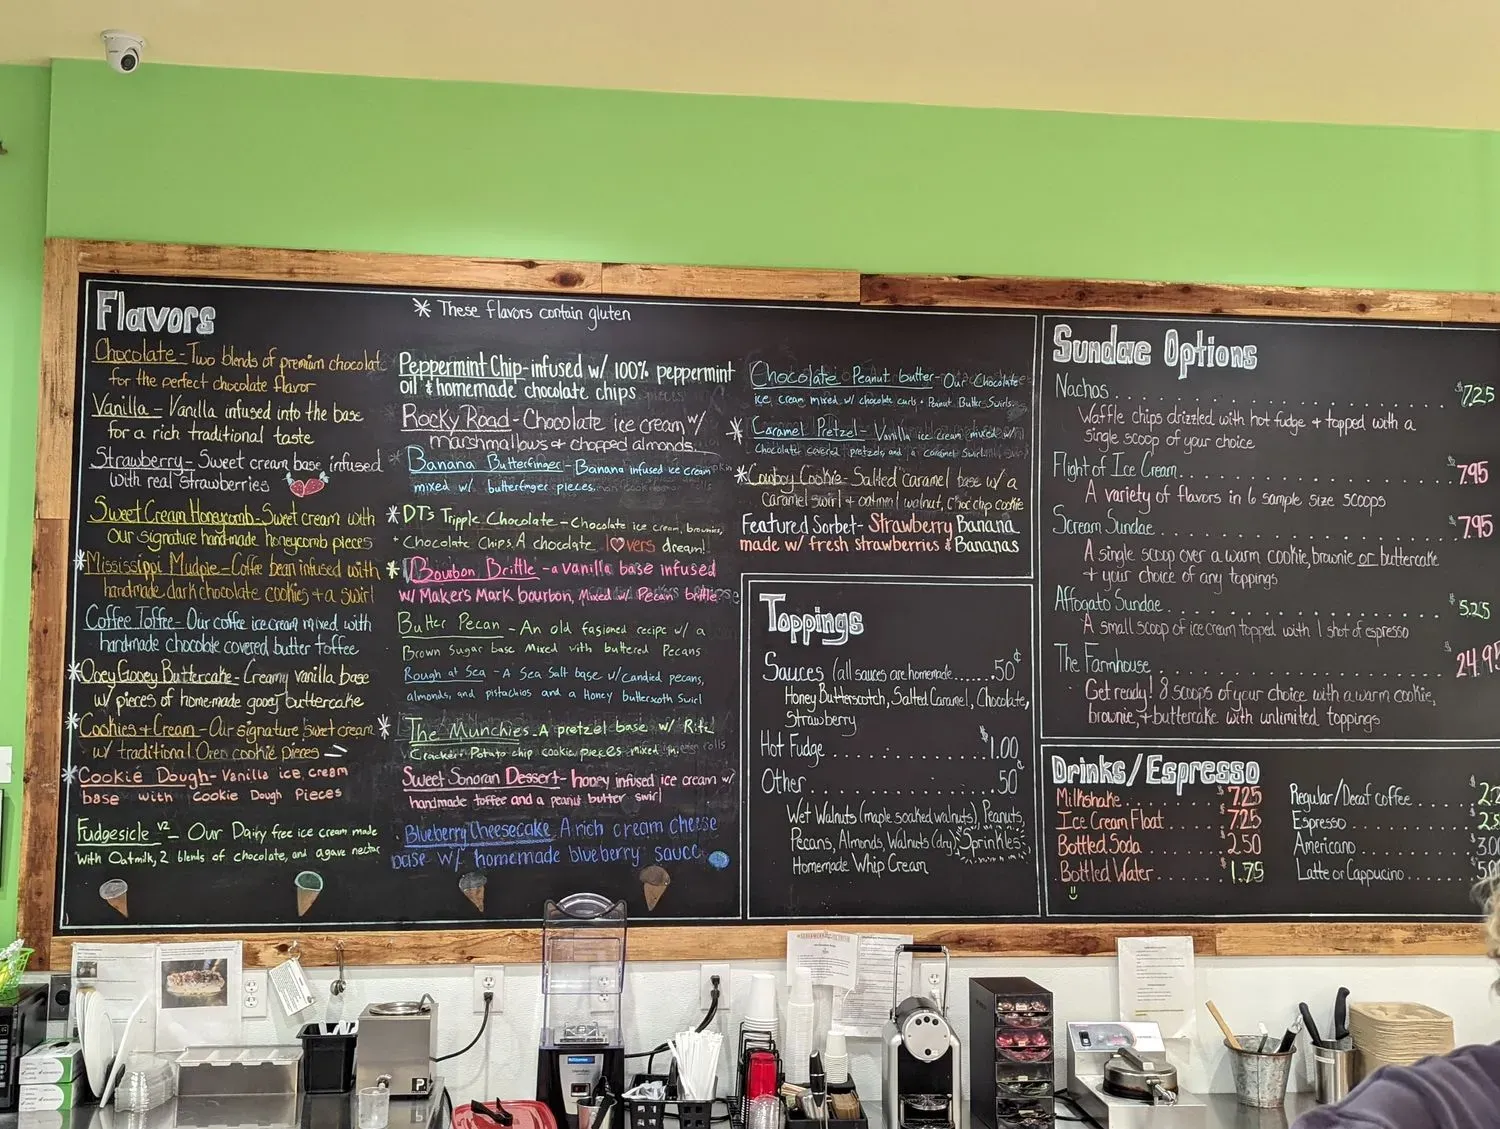 Flavors
* These flavors contain gluten
Chocolate - Two blends of premium chocolate
for the perfect chocolate flavor
Vanilla - Vanilla infused into the base
for a rich traditional taste
Strawberry - Sweet cream base infused
with real strawberries
Sweet Cream Honeycomb - Sweet cream with
our signature hand-made honeycomb pieces
* Mississippi Mudpie - Coffee bean infused with
handmade dark chocolate cookies + a swirl
Coffee Toffee - Our coffee ice cream mixed with
handmade chocolate covered butter toffee
* Ooey Gooey Buttercake - Creamy vanilla base
w/ pieces of home-made gooey buttercake
* Cookies + Cream - Our signature sweet cream
w/ traditional Oreo cookie pieces
* Cookie Dough - Vanilla ice cream
base with Cookie Dough Pieces
Fudgesicle V2 - Our Dairy free ice cream made
with Oatmilk, 2 blends of chocolate, and agave nectar
Peppermint Chip - infused w/ 100% peppermint
oil & homemade chocolate chips
Rocky Road - Chocolate ice cream w/
marshmallows + chopped almonds.
* Banana Butterfinger - Banana infused ice cream
mixed w/ butterfinger pieces.
* DT's Tripple Chocolate - Chocolate ice cream, brownies,
+ Chocolate Chips. A chocolate l♥vers dream!
* Bourbon Brittle - a vanilla base infused
w/ Maker's Mark bourbon, Mixed w/ Pecan brittle
Butter Pecan - An old fasioned recipe w/ a
Brown Sugar base Mixed with buttered Pecans
Rough at Sea - A Sea Salt base w/ candied pecans,
almonds, and pistachios and a Honey butterscoth Swirl
* The Munchies - A pretzel base w/ Ritz
Cracker. Potato chip cookie pieces mixed in.
Sweet Sonoran Dessert - honey infused ice cream w/
handmade toffee and a peanut butter swirl
Blueberry Cheesecake A rich cream cheese
base w/ homemade blueberry sauce
Chocolate Peanut butter - Our Chocolate
ice cream mixed w/ chocolate curls + Peanut Butter Swirls.
* Caramel Pretzel - Vanilla ice cream mixed w/
Chocolate covered pretzels and a caramel Swirl
* Cowboy Cookie - Salted caramel base w/ a
Caramel swirl + oatmeal walnut, Choc chip cookie
Featured Sorbet - Strawberry Banana
made w/ fresh strawberries & Bananas
Toppings
Sauces (all sauces are homemade........50¢
Honey Butterscotch, Salted Caramel, Chocolate,
Strawberry
Hot Fudge..............$1.00
Other..................50¢
Wet Walnuts (maple soaked walnuts), Peanuts,
Pecans, Almonds, Walnuts (dry), Sprinkles
Homemade Whip Cream
Sundae Options
Nachos..............................$7.25
Waffle chips drizzled with hot fudge & topped with a
single scoop of your choice
Flight of Ice Cream..............................$7.95
A variety of flavors in 6 sample size scoops
Scream Sundae..............................$7.95
A single scoop over a warm cookie, brownie or buttercake
+ your choice of any toppings
Affogato Sundae..............................$5.25
A small scoop of ice cream topped with 1 shot of espresso
The Farmhouse..............................$24.95
Get ready! 8 scoops of your choice with a warm cookie,
brownie, + buttercake with unlimited toppings
Drinks/Espresso
Milkshake..........$7.25
Ice Cream Float.....$7.25
Bottled Soda.......$2.50
Bottled Water......$1.75
Regular/Decaf coffee
Espresso
Americano
Latte or Cappucino